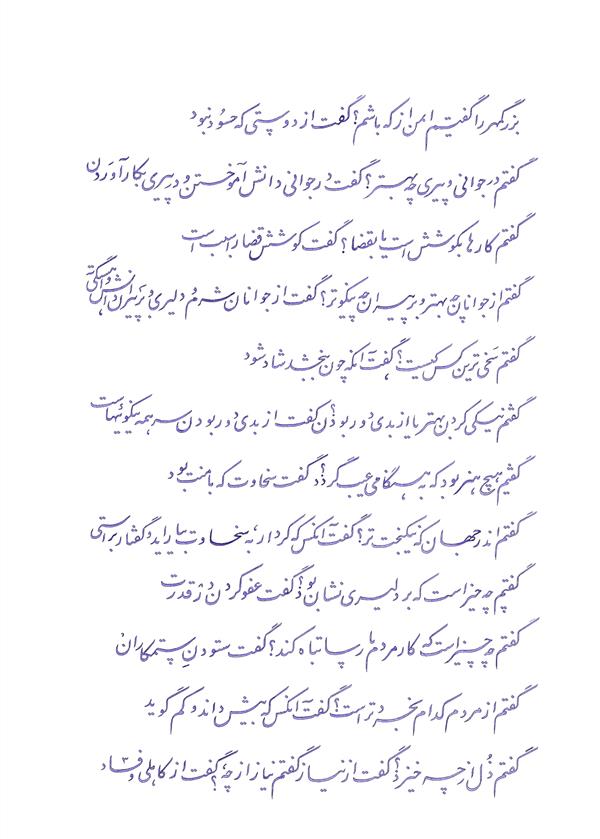 بزرگمهر را گفتم ایمن از که باشم؟ گفت از دوستی که حسود نبود
گفتم در جوانی و پیری چه بهتر؟ گفت در جوانی دانش آموختن و در پیری بکار آوردن
گفتم کارها بکوشش است یا بقضا؟ گفت کوشش قضا را سبب است
گفتم از جوانان چه بهتر و بر پیران چه نیکوتر؟ گفت از جوانان شرم و دلیری و بر پیران دانش و آهستگی
گفتم سخی‌ترین کس کیست؟ گفت آنکه چون ببخشد شاد شود
گفتم نیکی کردن بهتر یا از بدی دور بوذن گفت از بدی دور بودن سر همه نیکوئیهاست
گفتم هیچ هنر بود که به هنگامی عیب گردذ؟ گفت سخاوت که با منت بود
گفتم اندر جهان که نیکبخت تر؟ گفت آنکس که کردار به سخاوت بیاراید و گفتار براستی
گفتم چه چیز است که بر دلیری نشان بوذ؟ گفت عفو کردن در قدرت
گفتم چه چیز است که کار مردم پارسا تباه کند؟ گفت ستودن ستمکاران
گفتم از مردم کدام بخردتر است؟ گفت آنکس که بیش داند و کم گوید
گفتم ذُل از چه خیزذ؟ گفت از نیاز گفتم نیاز از چه؟ گفت از کاهلی و فساد